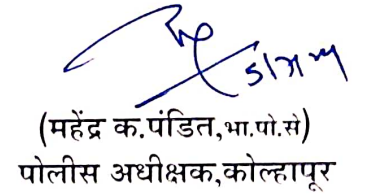 (महेंद्र क.पंडित,भा.पो.से)
पोलीस अधीक्षक,कोल्हापूर